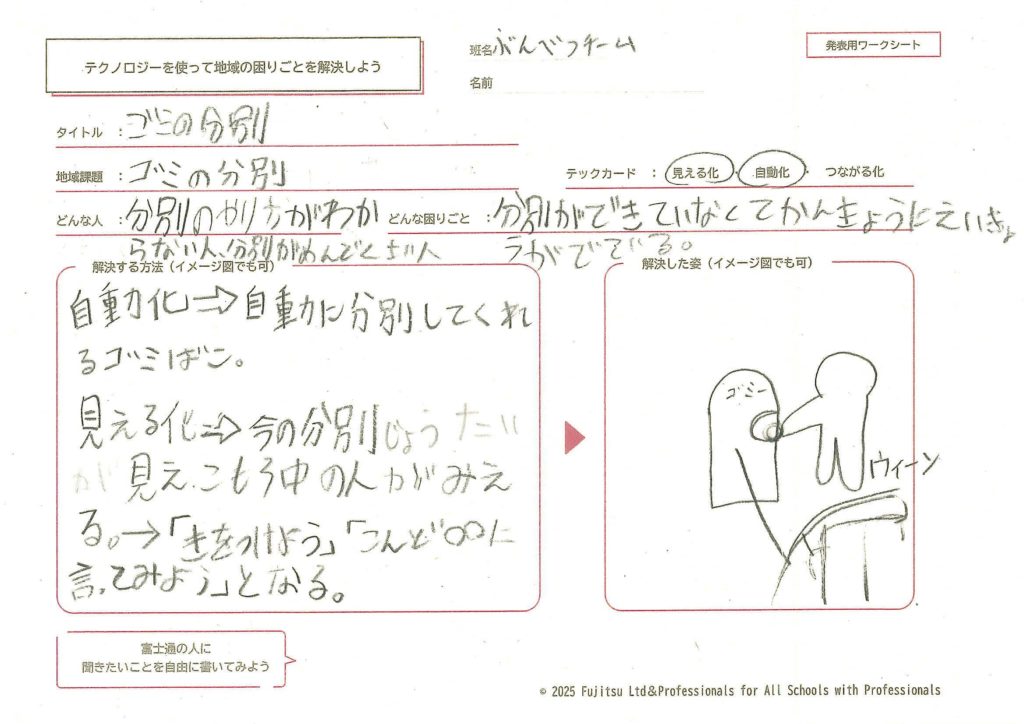 班名 ぶんべつチーム
発表用ワークシート
テクノロジーを使って地域の困りごとを解決しよう
名前
タイトル : ゴミの分別
地域課題 : ゴミの分別
テックカード : 見える化・自動化・つながる化
どんな人 : 分別のやり方がわか
らない人、分別がめんどくさい人
どんな困りごと : 分別ができていなくてかんきょうにえいきょ
うがでている。
解決する方法(イメージ図でも可)
自動化⇒自動に分別してくれ
るゴミばこ。
見える化⇒今の分別じょうたい
が見え、こもろ中の人がみえ
る。→「きをつけよう」「こんど〇〇に
言ってみよう」となる。
解決した姿(イメージ図でも可)
ゴミー
ウィーン
富士通の人に
聞きたいことを自由に書いてみよう
© 2025 Fujitsu Ltd&Professionals for All Schools with Professionals